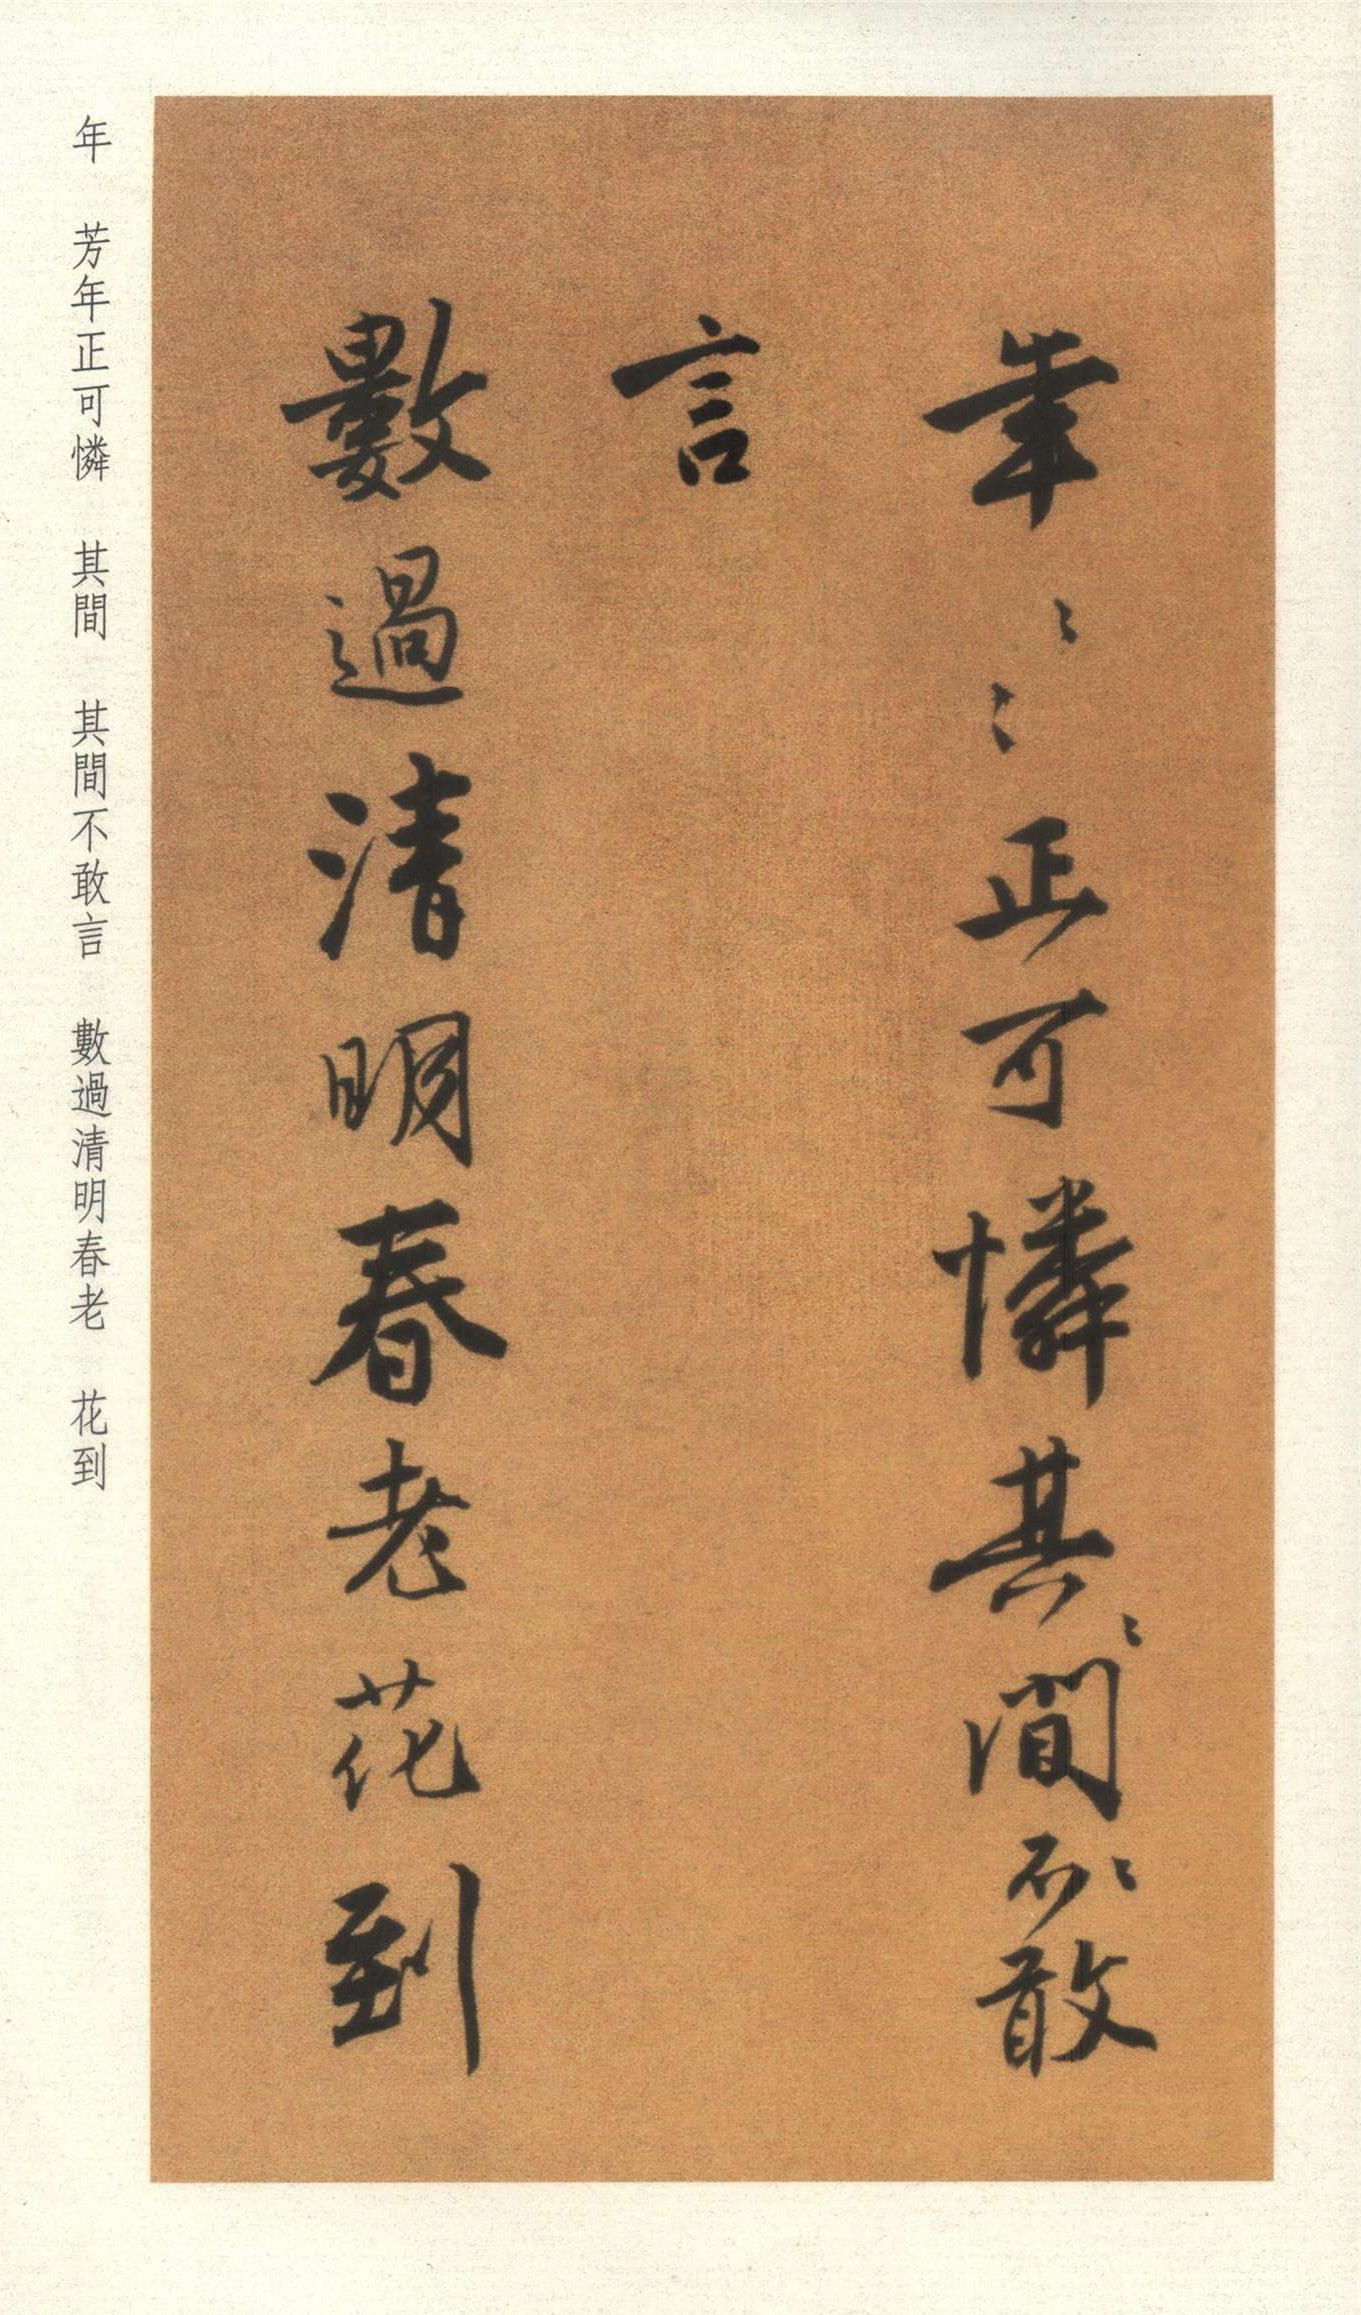 年〻〻正可憐其〻間〻不敢
言
數過清明春老花到
年　芳年正可憐　其間　其間不敢言　數過清明春老　花到